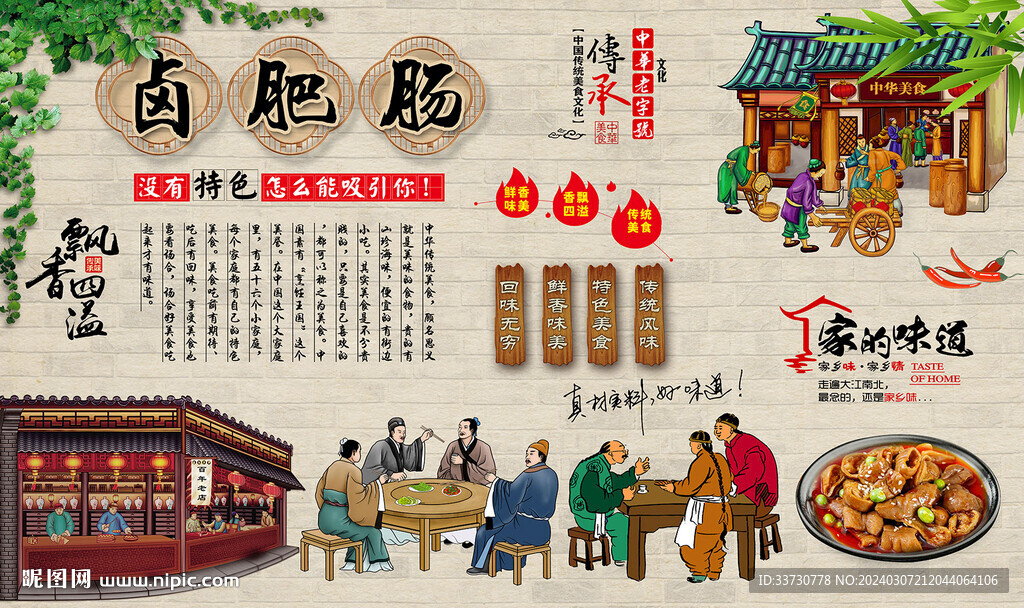 卤肥肠
没有特色怎么能吸引你！
飘香四溢
美味
中华传统美食，顾名思义
就是美味的食物，贵的有
山珍海味，便宜的有街边
小吃。其实美食是不分贵
贱的，只要是自己喜欢的
，都可以称之为美食。中
国素有“烹饪王国”这个
美誉。在中国这个大家庭
里，有五十六个小家庭，
每个家庭都有自己的特色
美食。美食吃前有期待、
吃后有回味，享受美食也
要看场合，场合好美食吃
起来才有味道。
文化
中華老字號
傳承
中華美食
【中国传统美食文化】
鲜香味美
香飘四溢
传统美食
回味无穷
鲜香味美
特色美食
传统风味
真材实料，好味道！
中华美食
食
家的味道
家乡味·家乡情
TASTE
OF HOME
走遍大江南北，
最念的，还是家乡味...
百年老店
昵图网 www.nipic.com
ID:33730778 NO:20240307212044064106